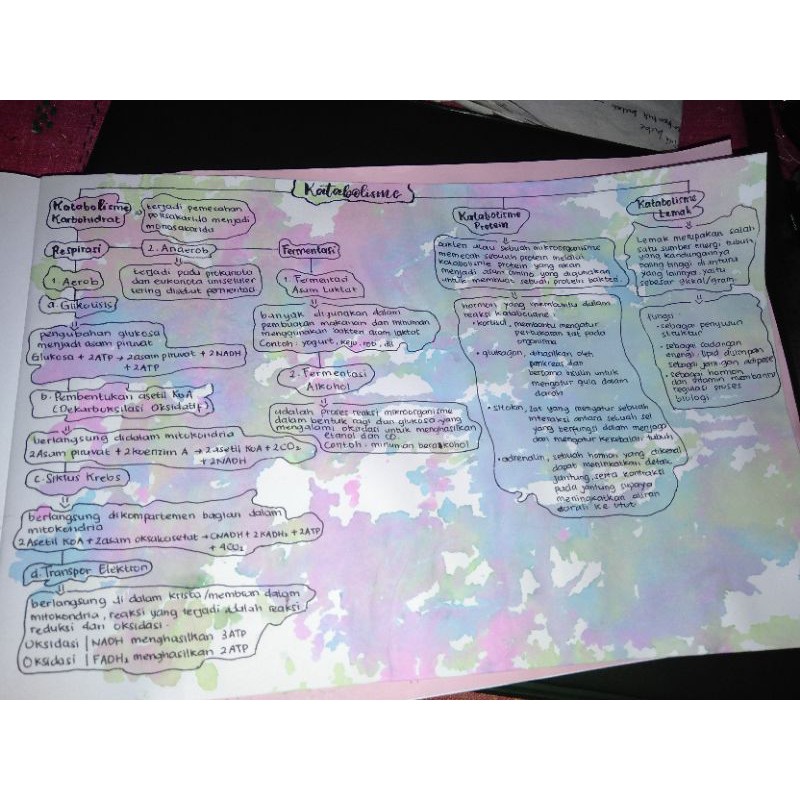 Katabolisme
Katabolisme
Karbohidrat
terjadi pemecahan
polisakarida menjadi
monosakarida
Respirasi
2. Anaerob
terjadi pada prokariota
dan eukariota uniseluler
sering disebut fermentasi
1. Aerob
a. Glikolisis
pengubahan glukosa
menjadi asam piruvat
Glukosa + 2ATP → 2asam piruvat + 2NADH
+ 2ATP
b. Pembentukan asetil KoA
(Dekarboksilasi Oksidatif)
berlangsung didalam mitokondria
2Asam piruvat + 2koenzim A → 2asetil KoA + 2CO₂
+ 2NADH
c. Siklus Krebs
berlangsung dikompartemen bagian dalam
mitokondria
2Asetil KoA + 2asam oksaloasetat → 6NADH + 2FADH₂ + 2ATP
+ 4CO₂
d. Transpor Elektron
berlangsung di dalam krista/membran dalam
mitokondria, reaksi yang terjadi adalah reaksi
reduksi dan oksidasi.
Oksidasi | NADH menghasilkan 3ATP
Oksidasi | FADH₂ menghasilkan 2ATP
Fermentasi
1. Fermentasi
Asam Laktat
banyak digunakan dalam
pembuatan makanan dan minuman
menggunakan bakteri asam laktat
Contoh : yogurt, keju, roti, dll
2. Fermentasi
Alkohol
adalah proses reaksi mikroorganisme
dalam bentuk ragi dan glukosa yang
mengalami oksidasi untuk menghasilkan
etanol dan CO.
Contoh : minuman beralkohol
Katabolisme
Protein
sebuah mikroorganisme
memecah sebuah protein melalui
katabolisme protein yang akan
menjadi asam amino yang digunakan
untuk membuat sebuah protein bakteri.
hormon yang membantu dalam
reaksi katabolisme :
• kortisol, membantu mengatur
pertukaran zat pada
organisme
• glukagon, dihasilkan oleh
pankreas dan
bersama insulin untuk
mengatur gula dalam
darah
• sitokin, zat yang mengatur sebuah
interaksi antara sebuah sel
yang berfungsi dalam menjaga
dan mengatur kekebalan tubuh
• adrenalin, sebuah hormon yang dikenal
dapat meningkatkan detak
jantung, serta kontraksi
pada jantung supaya
meningkatkan aliran
darah ke otot
Katabolisme
Lemak
Lemak merupakan salah
satu sumber energi tubuh
yang kandungannya
paling tinggi di antara
yang lainnya, yaitu
sebesar 9kkal/gram
fungsi :
• sebagai penyusun
struktur
• sebagai cadangan
energi, lipid disimpan
sebagai jaringan adiposa
• sebagai hormon
dan vitamin membantu
regulasi proses
biologi